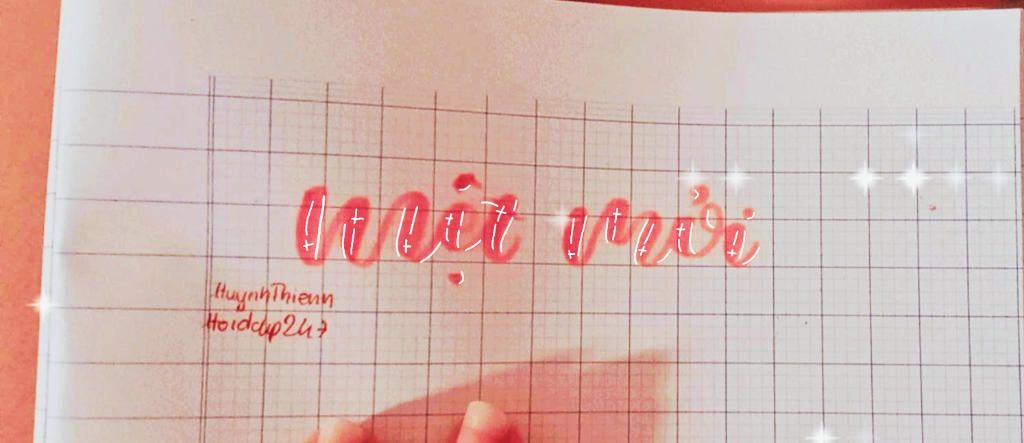 mệt mỏi
HuynhThienn
Hoidap247